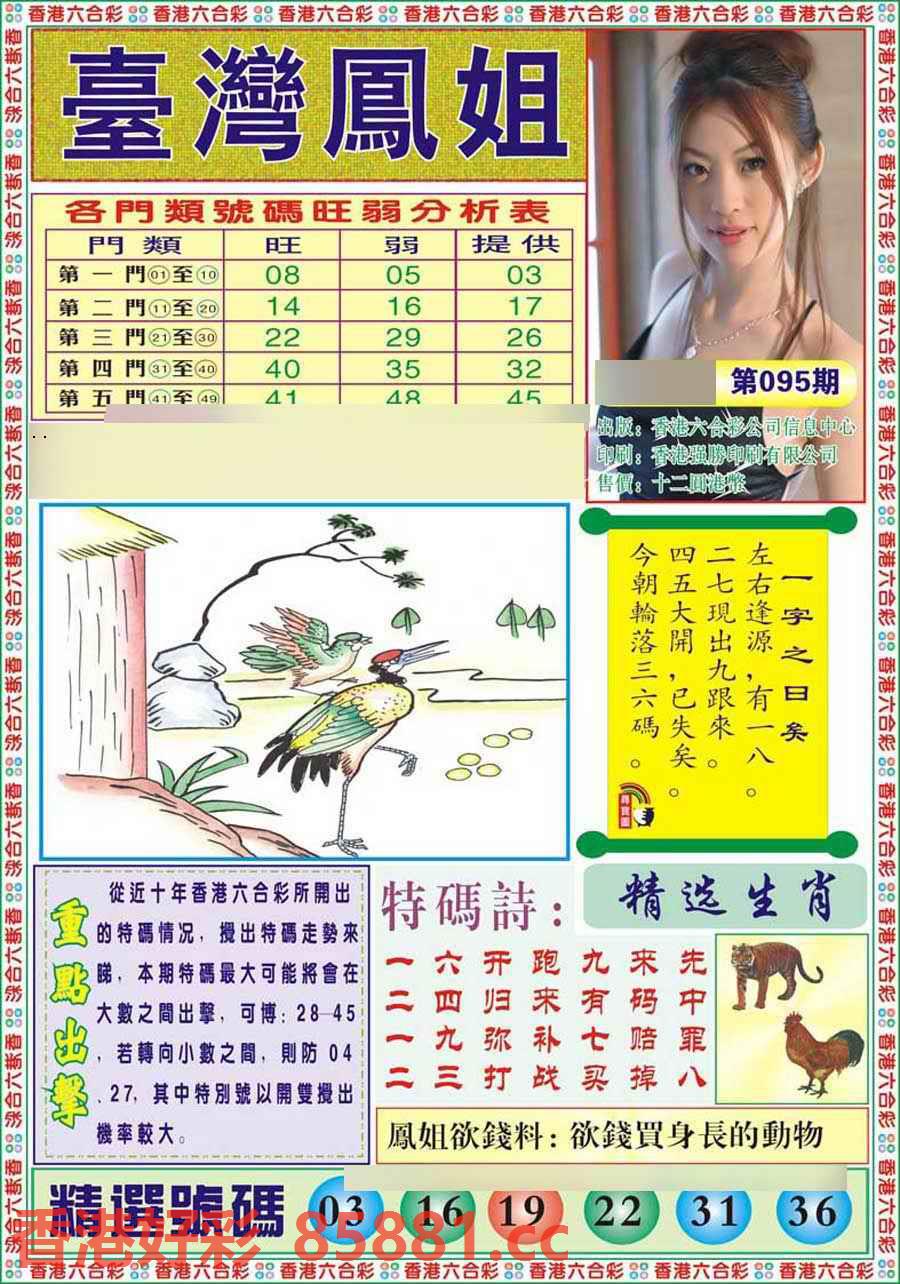 香港六合彩
臺灣鳳姐
各門類號碼旺弱分析表
門類 旺 弱 提供
第一門01至10 08 05 03
第二門11至20 14 16 17
第三門21至30 22 29 26
第四門31至40 40 35 32
第五門41至49 41 48 45
第095期
出版：香港六合彩公司信息中心
印刷：香港强勝印刷有限公司
售價：十二圓港幣
一字之曰矣
左右逢源，有一八。
二七現出九跟來。
四五大開，已失矣。
今朝輪落三六碼。
尋寶圖
重點出擊
從近十年香港六合彩所開出
的特碼情况，攪出特碼走勢來
睇，本期特碼最大可能將會在
大數之間出擊，可博：28—45
，若轉向小數之間，則防 04
、27，其中特別號以開雙攪出
機率較大。
特碼詩：
一六开跑九来先
二四归来有码中
一九弥补七赔罪
二三打战买掉八
精选生肖
鳳姐欲錢料：欲錢買身長的動物
精選號碼 03 16 19 22 31 36
香港好彩 85881.cc